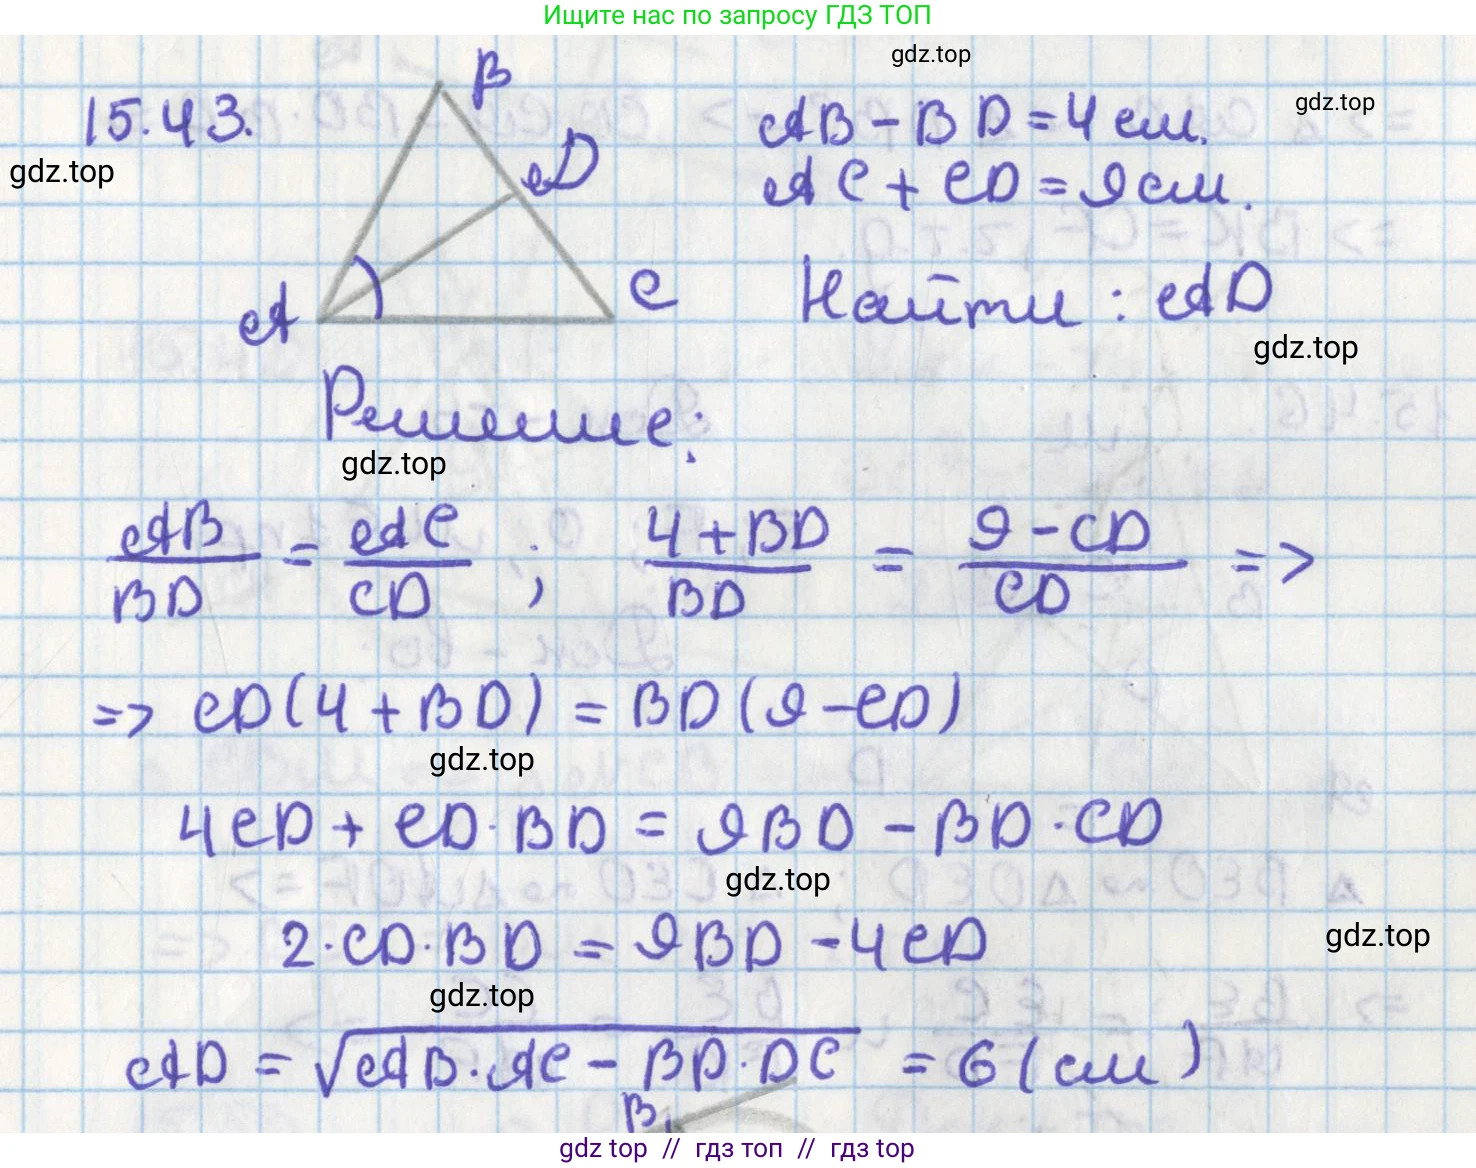 Ищите нас по запросу ГДЗ ТОП
gdz.top
B
15.43.
AB - BD = 4 см.
gdz.top
gdz.top
D
AC + CD = 9 см.
A
C
Найти : AD
gdz.top
Решение:
gdz.top
AB/BD = AC/CD ; 4+BD/BD = 9-CD/CD =>
=> CD(4 + BD) = BD(9 - CD)
gdz.top
4CD + CD·BD = 9BD - BD·CD
gdz.top
2·CD·BD = 9BD - 4CD
gdz.top
gdz.top
AD = √AB·AC - BD·DC = 6 (см)
B1
gdz top // гдз топ // gdz top